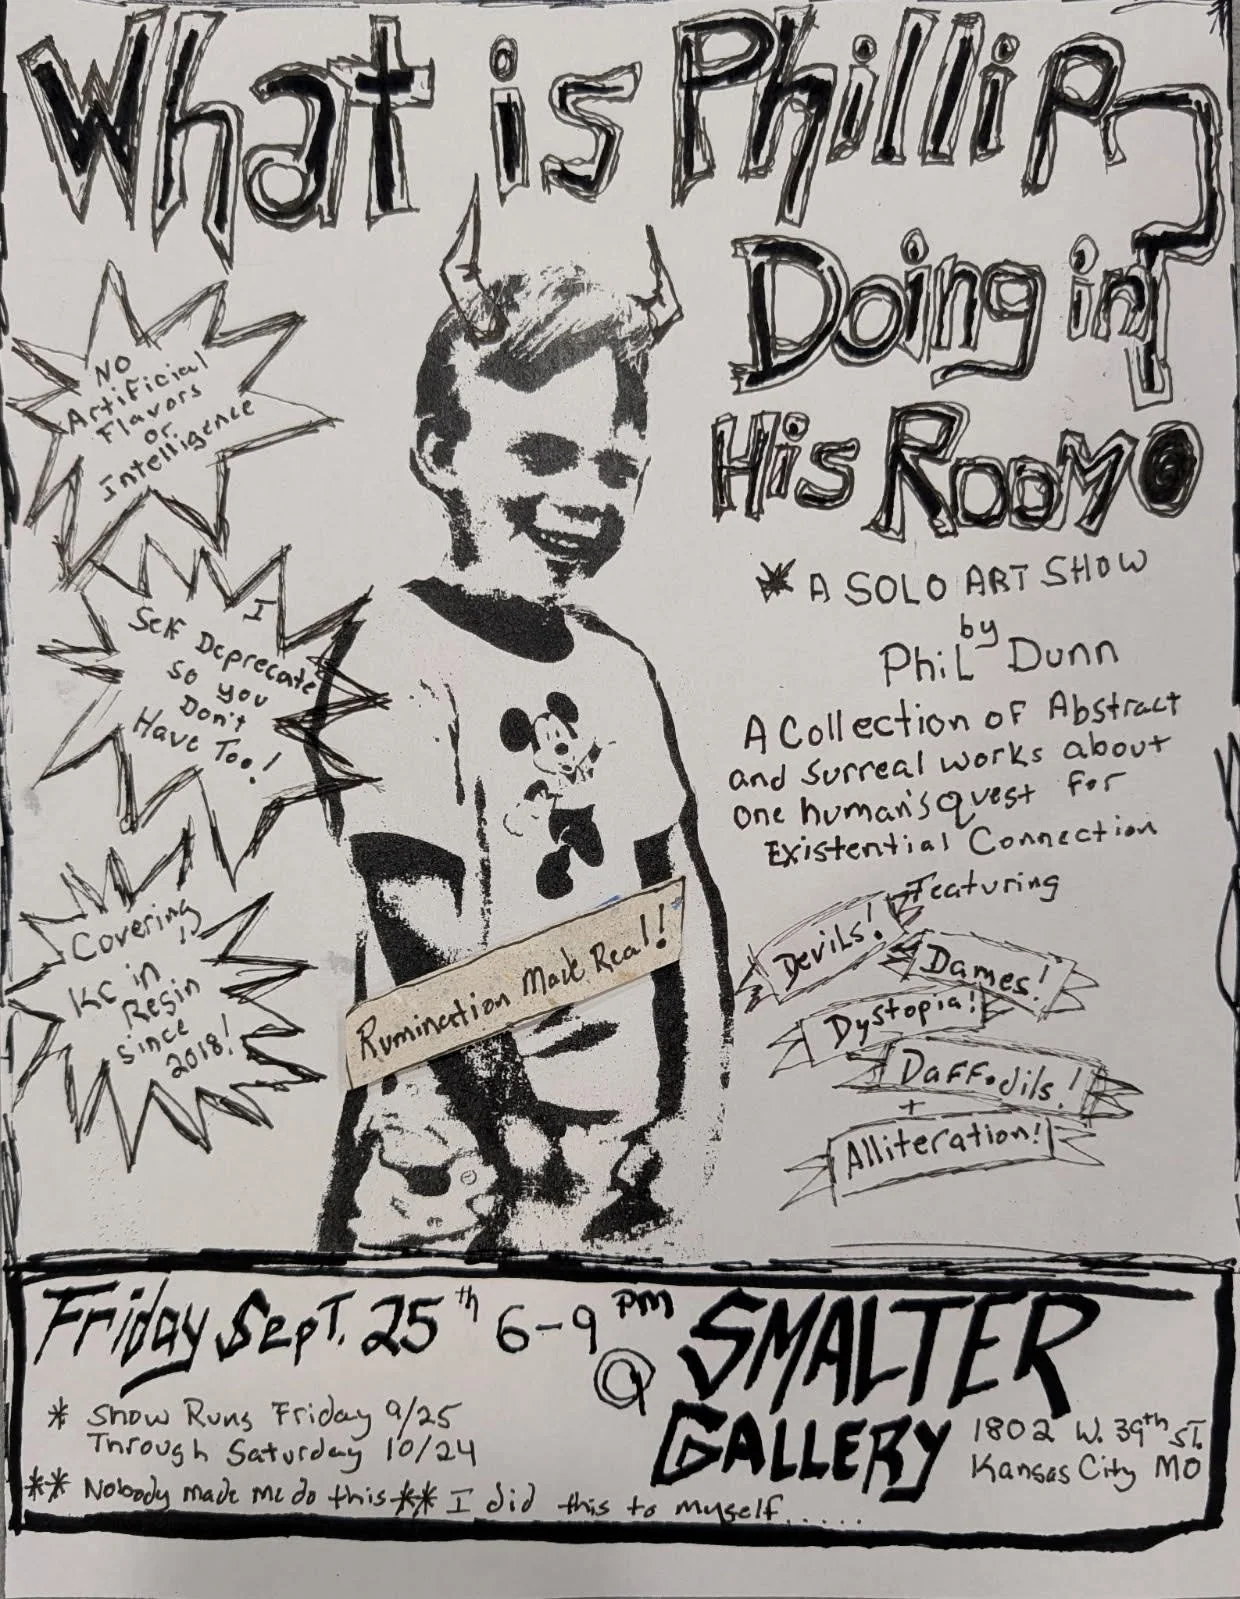 What is Phillip
Doing in
His Room?
* A SOLO ART SHOW
by
Phil Dunn
A Collection of Abstract
and Surreal works about
one human's quest for
Existential Connection
Featuring
Devils!
Dames!
Dystopia!
Daffodils!
+
Alliteration!
NO
Artificial
Flavors
or
Intelligence
I
Self Deprecate
so you
Don't
Have Too!
Covering
KC in
Resin
since
2018!
Rumination Made Real!
Friday Sept. 25th 6-9 PM
@ SMALTER
GALLERY
1802 W. 39th St.
Kansas City MO
* Show Runs Friday 9/25
Through Saturday 10/24
** Nobody made me do this ** I did this to myself.....